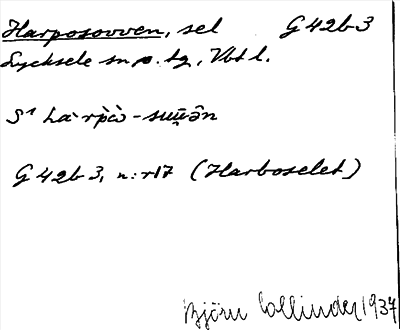 Harposovven, sel G42b3
Lycksele sn o. tg, Vbtl.
S¹ La·rpò̀ -suṷ̄ə̄n
G42b3, n:r17 (Harboselet)
Björn Collinder 1937